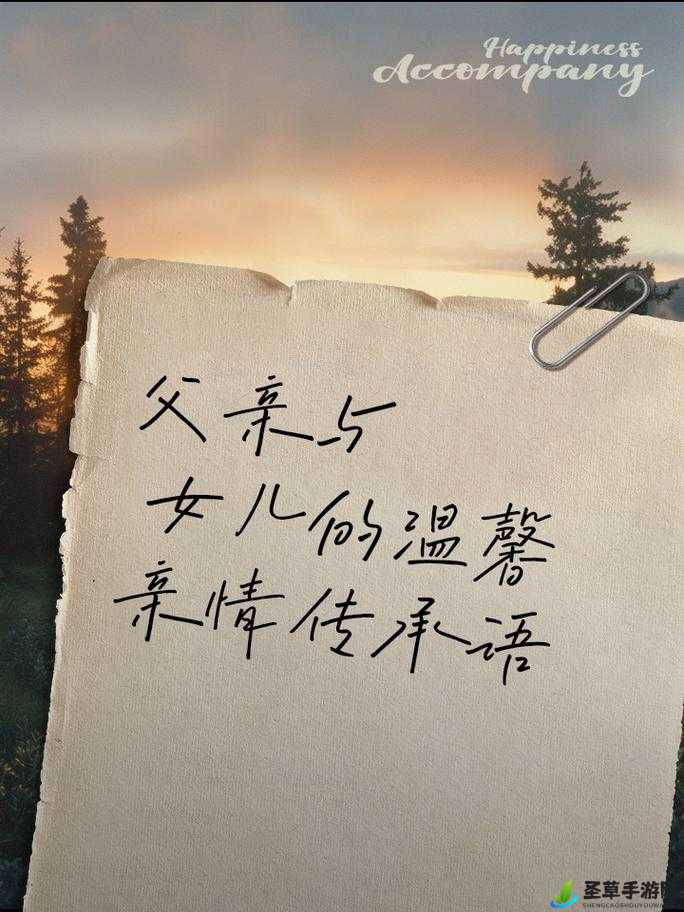 Happiness
Accompany
父亲与
女儿的温馨
亲情传承语
圣草手游
SHENGCAOSHOUYOUW